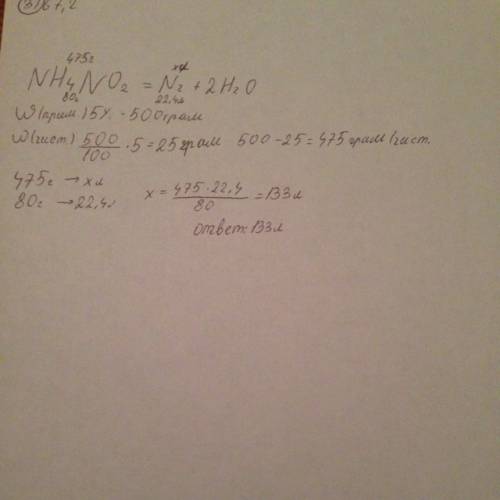 475г xл
NH₄NO₂ = N₂ + 2H₂O
80г 22,4л
W(прим.) 5% - 500грам
W(чист.) 500/100 · 5 = 25грам 500 - 25 = 475грам/чист.
475г → xл
80г → 22,4л
x = 475·22,4/80 = 133л
ответ: 133л